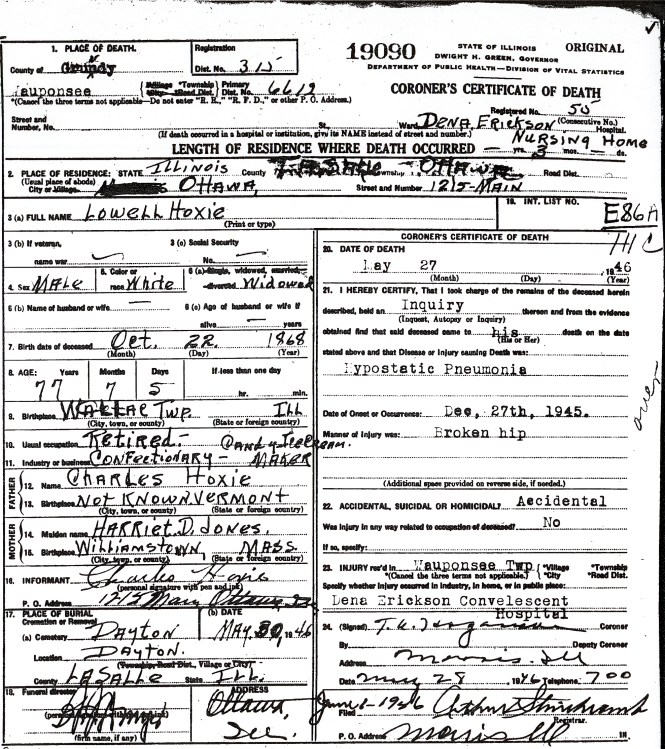 19090
STATE OF ILLINOIS
ORIGINAL
DWIGHT H. GREEN, GOVERNOR
DEPARTMENT OF PUBLIC HEALTH—DIVISION OF VITAL STATISTICS
CORONER'S CERTIFICATE OF DEATH
1. PLACE OF DEATH.
County of Grundy
Registration
Dist. No. 315
Wauponsee
Primary
Dist. No. 6612
*(Cancel the three terms not applicable—Do not enter "R. R.," "R. F. D.," or other P. O. Address.)
Registered No. 55
(Consecutive No.)
Street and
Number, No.
St.
Ward, DENA ERICKSON
Hospital.
NURSING HOME
(If death occurred in a hospital or institution, give its NAME instead of street and number.)
LENGTH OF RESIDENCE WHERE DEATH OCCURRED — yrs. 3 mos. — ds.
2. PLACE OF RESIDENCE: STATE ILLINOIS County LA SALLE Township OTTAWA Road Dist.
(Usual place of abode)
City or Village OTTAWA, Street and Number 1215-MAIN
3 (a) FULL NAME LOWELL HOXIE
(Print or type)
19. INT. LIST NO.
E86A
3 (b) If veteran,
name war
3 (c) Social Security
No.
4. Sex MALE
5. Color or
race White
6 (a) Single, widowed, married,
divorced Widowed
6 (b) Name of husband or wife —
6 (c) Age of husband or wife if
alive — years
7. Birth date of deceased Oct. 22. 1868
(Month) (Day) (Year)
8. AGE: Years Months Days If less than one day
77 7 5 hr. min.
9. Birthplace WALLACE TWP ILL
(City, town, or county) (State or foreign country)
10. Usual occupation RETIRED - CANDY-ICE CREAM.
11. Industry or business CONFECTIONARY - MAKER
FATHER
12. Name CHARLES HOXIE
13. Birthplace NOT KNOWN VERMONT
(City, town, or county) (State or foreign country)
MOTHER
14. Maiden name HARRIET D. JONES.
15. Birthplace WILLIAMSTOWN, MASS
(City, town, or county) (State or foreign country)
16. INFORMANT Charles Hoxie
(personal signature with pen and ink)
P. O. Address 1215 Main Ottawa Ill
17. PLACE OF BURIAL
Cremation or Removal
(b) DATE
(a) Cemetery DAYTON MAY 30, 1946
Location DAYTON.
(Township, Road Dist., Village or City)
County LASALLE State ILL.
18. Funeral director
ADDRESS
Ottawa,
Ill.
(firm name, if any)
CORONER'S CERTIFICATE OF DEATH
20. DATE OF DEATH
May 27 1946
(Month) (Day) (Year)
21. I HEREBY CERTIFY, That I took charge of the remains of the deceased herein
described, held an Inquiry thereon and from the evidence
(Inquest, Autopsy or Inquiry)
obtained find that said deceased came to his death on the date
(His or Her)
stated above and that Disease or Injury causing Death was:
Hypostatic Pneumonia
Date of Onset or Occurrence: Dec, 27th, 1945.
Manner of injury was: Broken hip
over
(Additional space provided on reverse side, if needed.)
22. ACCIDENTAL, SUICIDAL OR HOMICIDAL? Accidental
Was injury in any way related to occupation of deceased? No
If so, specify:
23. INJURY rec'd in Wauponsee Twp *Village *Township
*(Cancel the three terms not applicable.) *City *Road Dist.
Specify whether injury occurred in industry, in home, or in public place:
Dena Erickson Convelescent
Hospital
24. (Signed) Coroner
By Deputy Coroner
Address Morris, Ill
Date May 28 1946 Telephone 700
Filed June 1-1946 Arthur
Registrar.
P. O. Address Morris Ill